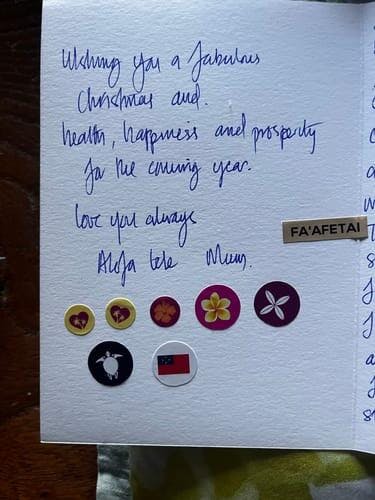 Wishing you a fabulous
Christmas and.
health, happiness and prosperity
for the coming year.
love you always
FA'AFETAI
Alofa tele Mum.